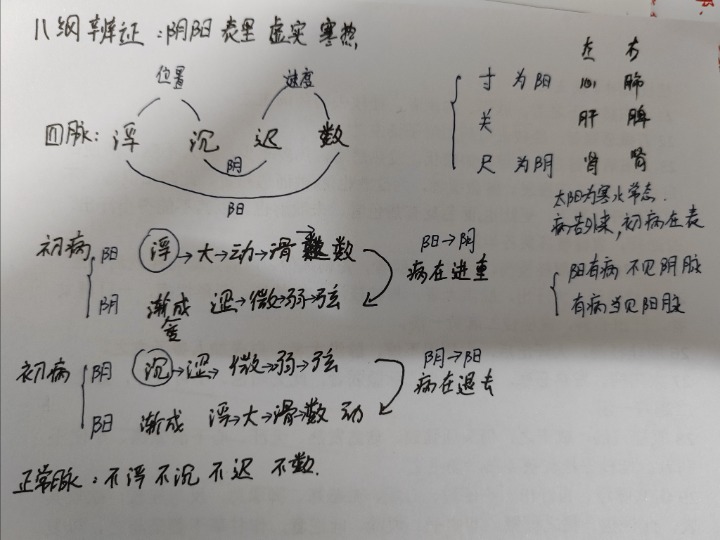 八纲辨证:阴阳 表里 虚实 寒热,
位置 速度
四脉: 浮 沉 迟 数
阴
阳
左 右
寸 为阳 心 肺
关 肝 脾
尺 为阴 肾 肾
太阳为寒水常态.
病苦外来,初病在表
阳有病 不见阴脉
有病当见阳脉
初病 阳 浮→大→动→滑→数
阴 渐成变 涩→微→弱→弦
阳→阴
病在进重
初病 阴 沉→涩→微→弱→弦
阳 渐成 浮→大→滑→数 动
阴→阳
病在退去
正常脉:不浮 不沉 不迟 不数.